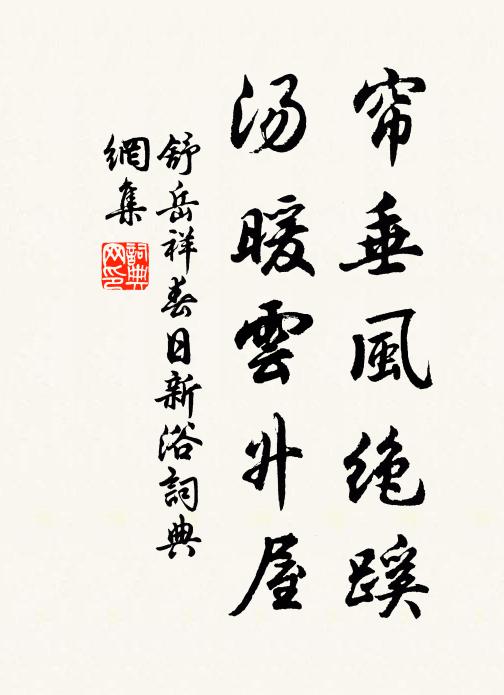 帘垂風絶蹊
汤暖雲升屋
舒岳祥春日新浴詞典
網集
詞典網印